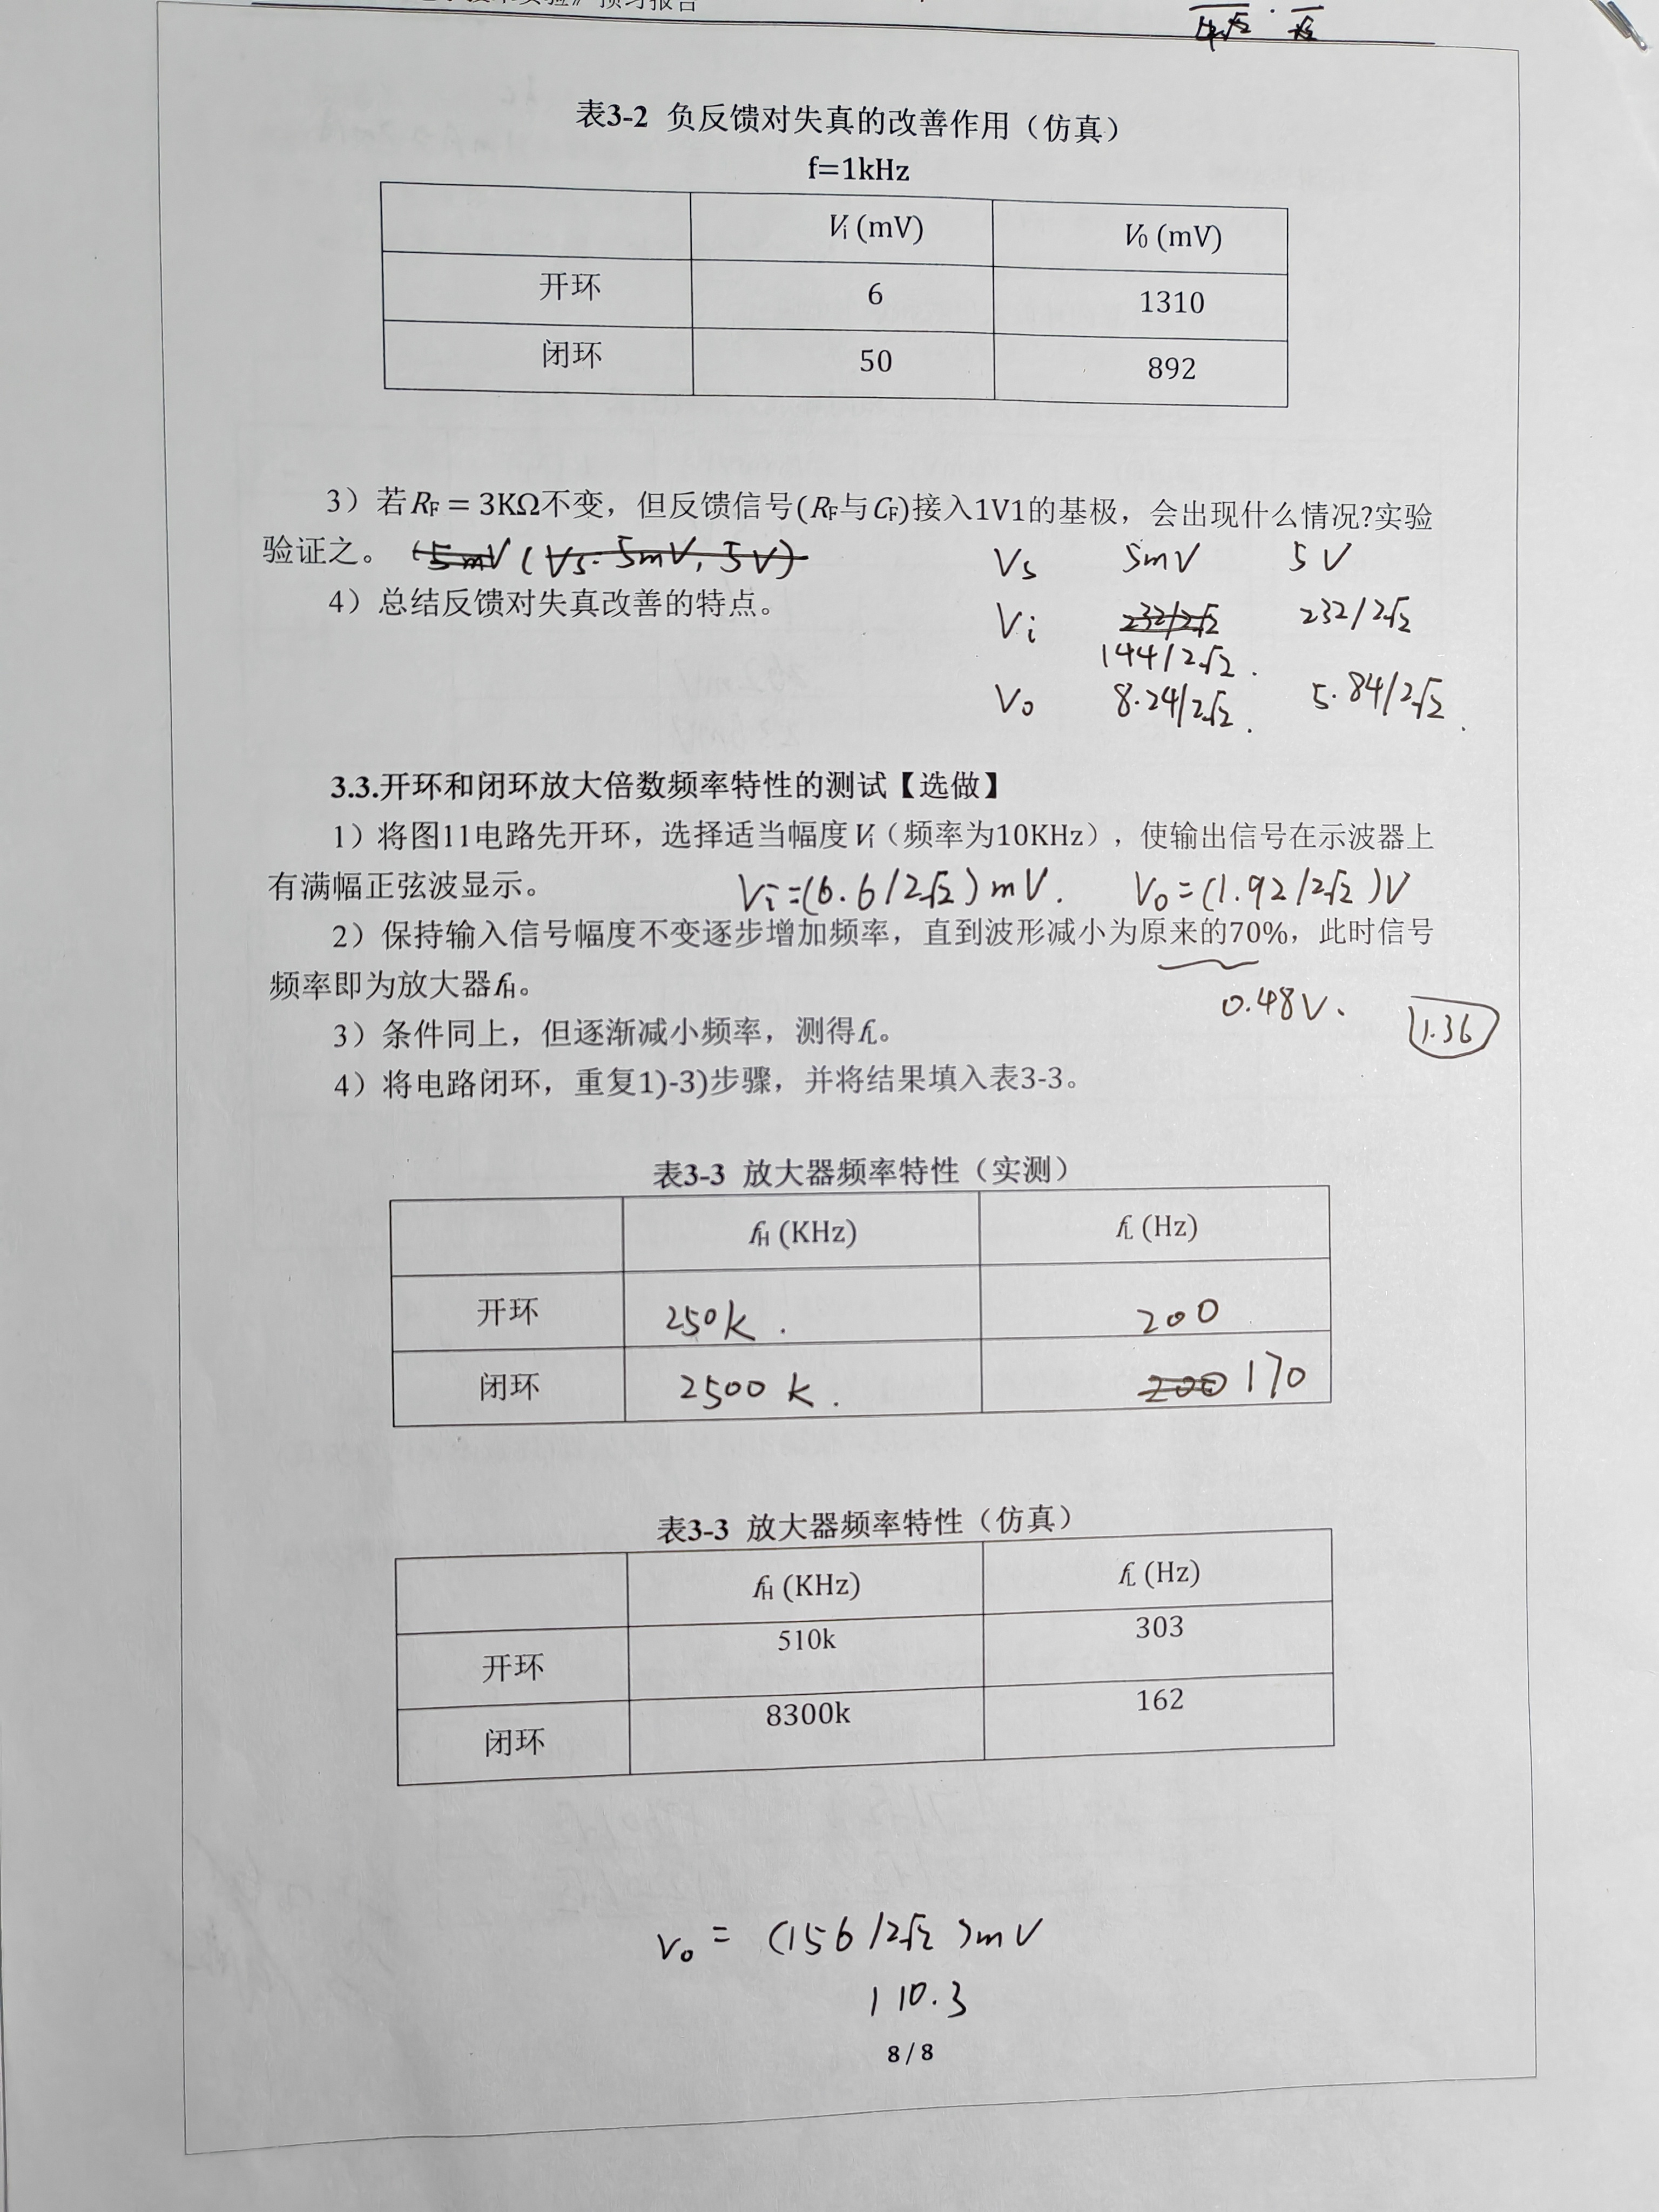 预习报告
4√2 · √2
表3-2 负反馈对失真的改善作用（仿真）
f=1kHz
Vi (mV) V0 (mV)
开环 6 1310
闭环 50 892
3）若RF = 3KΩ不变，但反馈信号(RF与CF)接入1V1的基极，会出现什么情况?实验
验证之。 (5mV (Vs: 5mV, 5V)
Vs 5mV 5V
4）总结反馈对失真改善的特点。
Vi 232/2√2 232/2√2
144/2√2.
Vo 8.24/2√2. 5.84/2√2.
3.3.开环和闭环放大倍数频率特性的测试【选做】
1）将图11电路先开环，选择适当幅度Vi（频率为10KHz），使输出信号在示波器上
有满幅正弦波显示。 Vi=(6.6/2√2)mV. Vo=(1.92/2√2)V
2）保持输入信号幅度不变逐步增加频率，直到波形减小为原来的70%，此时信号
频率即为放大器fH。
0.48V. 1.36
3）条件同上，但逐渐减小频率，测得fL。
4）将电路闭环，重复1)-3)步骤，并将结果填入表3-3。
表3-3 放大器频率特性（实测）
fH (KHz) fL (Hz)
开环 250k. 200
闭环 2500 k. 200 170
表3-3 放大器频率特性（仿真）
fH (KHz) fL (Hz)
开环 510k 303
闭环 8300k 162
Vo = (156/2√2)mV
110.3
8 / 8